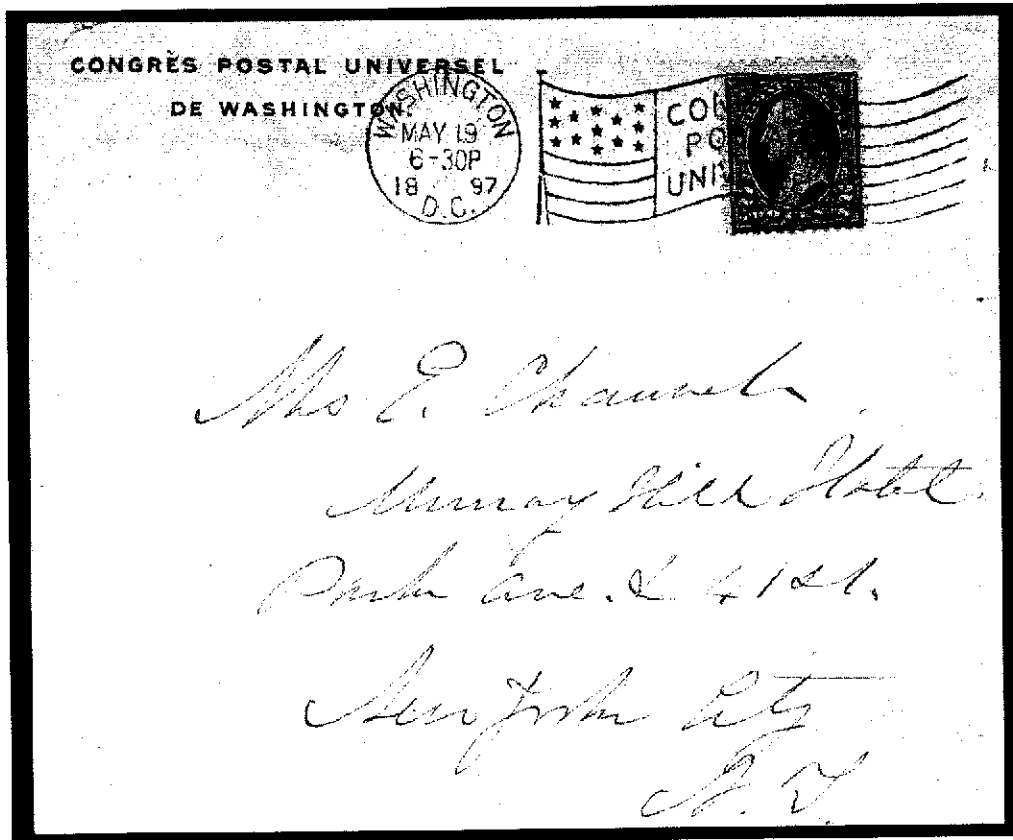 CONGRÈS POSTAL UNIVERSEL
DE WASHINGTON.
WASHINGTON
MAY 19
6-30P
18 97
D.C.
CO
PO
UNIV
E.
Murray Hill Hotel
Park Ave. & 41 St.
New York City
N. Y.